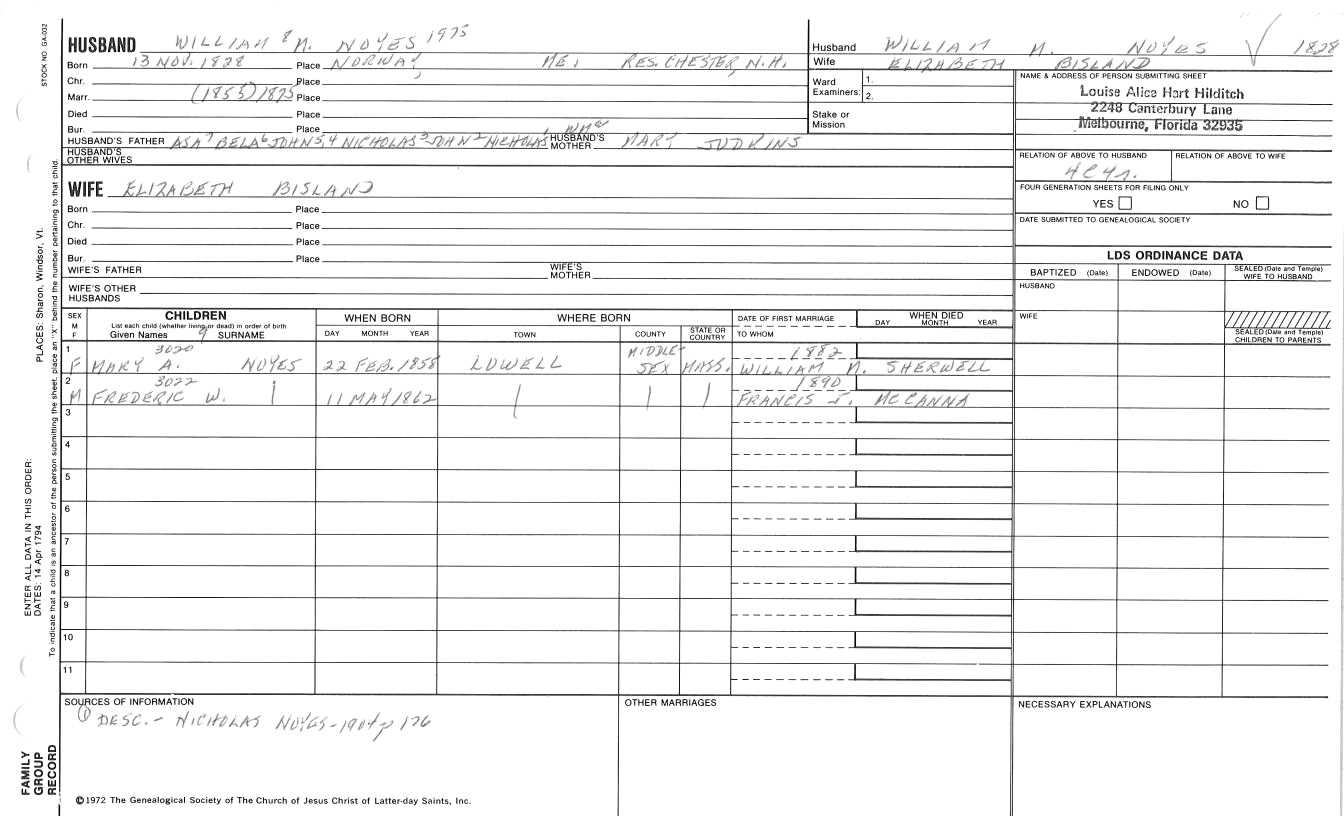 STOCK NO. GA-032
HUSBAND WILLIAM 8 M. NOYES 1975
Born 13 NOV. 1828 Place NORWAY, ME, RES. CHESTER, N.H.
Chr. Place
Marr. (1855) 1875 Place
Died Place
Bur. Place
HUSBAND'S FATHER ASA 7 BELA 6 JOHN 5,4 NICHOLAS 3 JOHN 2 NICHOLAS 1 HUSBAND'S MOTHER MARY JUDKINS
HUSBAND'S OTHER WIVES
WIFE ELIZABETH BISLAND
Born Place
Chr. Place
Died Place
Bur. Place
WIFE'S FATHER WIFE'S MOTHER
WIFE'S OTHER HUSBANDS
Husband WILLIAM M. NOYES √ 1828
Wife ELIZABETH BISLAND
Ward Examiners: 1. 2.
Stake or Mission
NAME & ADDRESS OF PERSON SUBMITTING SHEET
Louise Alice Hart Hilditch
2248 Canterbury Lane
Melbourne, Florida 32935
RELATION OF ABOVE TO HUSBAND RELATION OF ABOVE TO WIFE
4C4r.
FOUR GENERATION SHEETS FOR FILING ONLY
YES NO
DATE SUBMITTED TO GENEALOGICAL SOCIETY
LDS ORDINANCE DATA
BAPTIZED (Date) ENDOWED (Date) SEALED (Date and Temple) WIFE TO HUSBAND
HUSBAND
WIFE
SEALED (Date and Temple) CHILDREN TO PARENTS
SEX M F CHILDREN WHEN BORN WHERE BORN DATE OF FIRST MARRIAGE WHEN DIED
List each child (whether living or dead) in order of birth
Given Names 9 SURNAME DAY MONTH YEAR TOWN COUNTY STATE OR COUNTRY TO WHOM DAY MONTH YEAR
1 3020 MIDDLE- 1882
F MARY A. NOYES 22 FEB. 1858 LOWELL SEX MASS. WILLIAM M. SHERWELL
2 3022 1890
M FREDERIC W. 11 MAY 1862 FRANCIS J. MCCANNA
3
4
5
6
7
8
9
10
11
SOURCES OF INFORMATION OTHER MARRIAGES NECESSARY EXPLANATIONS
① DESC. - NICHOLAS NOYES - 1904 p 176
©1972 The Genealogical Society of The Church of Jesus Christ of Latter-day Saints, Inc.
FAMILY GROUP RECORD
ENTER ALL DATA IN THIS ORDER:
DATES: 14 Apr 1794
PLACES: Sharon, Windsor, Vt.
To indicate that a child is an ancestor of the person submitting the sheet, place an "X" behind the number pertaining to that child.